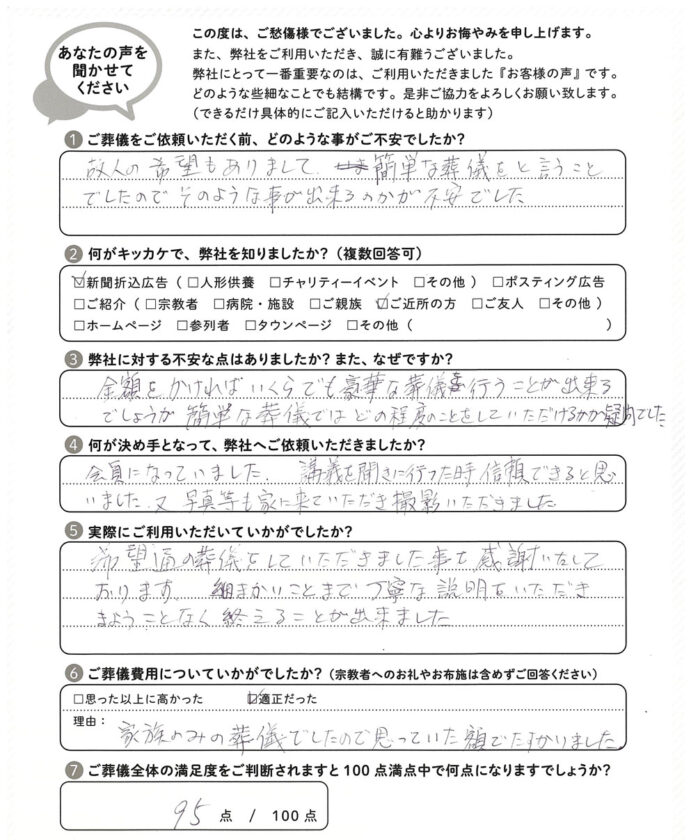 あなたの声を
聞かせて
ください
この度は、ご愁傷様でございました。心よりお悔やみを申し上げます。
また、弊社をご利用いただき、誠に有難うございました。
弊社にとって一番重要なのは、ご利用いただきました『お客様の声』です。
どのような些細なことでも結構です。是非ご協力をよろしくお願い致します。
（できるだけ具体的にご記入いただけると助かります）
1 ご葬儀をご依頼いただく前、どのような事がご不安でしたか？
故人の希望もありまして、簡単な葬儀をと言うこと
でしたのでそのような事が出来るのかが不安でした
2 何がキッカケで、弊社を知りましたか？（複数回答可）
☑新聞折込広告（□人形供養 □チャリティーイベント □その他） □ポスティング広告
□ご紹介（□宗教者 □病院・施設 □ご親族 ☑ご近所の方 □ご友人 □その他）
□ホームページ □参列者 □タウンページ □その他（ ）
3 弊社に対する不安な点はありましたか？また、なぜですか？
金額をかければいくらでも豪華な葬儀を行うことが出来る
でしょうが簡単な葬儀ではどの程度のことをしていただけるかが疑問でした
4 何が決め手となって、弊社へご依頼いただきましたか？
会員になっていました、講義を聞きに行った時信頼できると思
いました、又写真等も家に来ていただき撮影いただきました
5 実際にご利用いただいていかがでしたか？
希望通の葬儀をしていただきました事を感謝いたして
おります、細まかいことまで丁寧な説明をいただき
まようことなく終えることが出来ました
6 ご葬儀費用についていかがでしたか？（宗教者へのお礼やお布施は含めずご回答ください）
□思った以上に高かった ☑適正だった
理由： 家族のみの葬儀でしたので思っていた額でたすかりました。
7 ご葬儀全体の満足度をご判断されますと100点満点中で何点になりますでしょうか？
95 点 / 100点